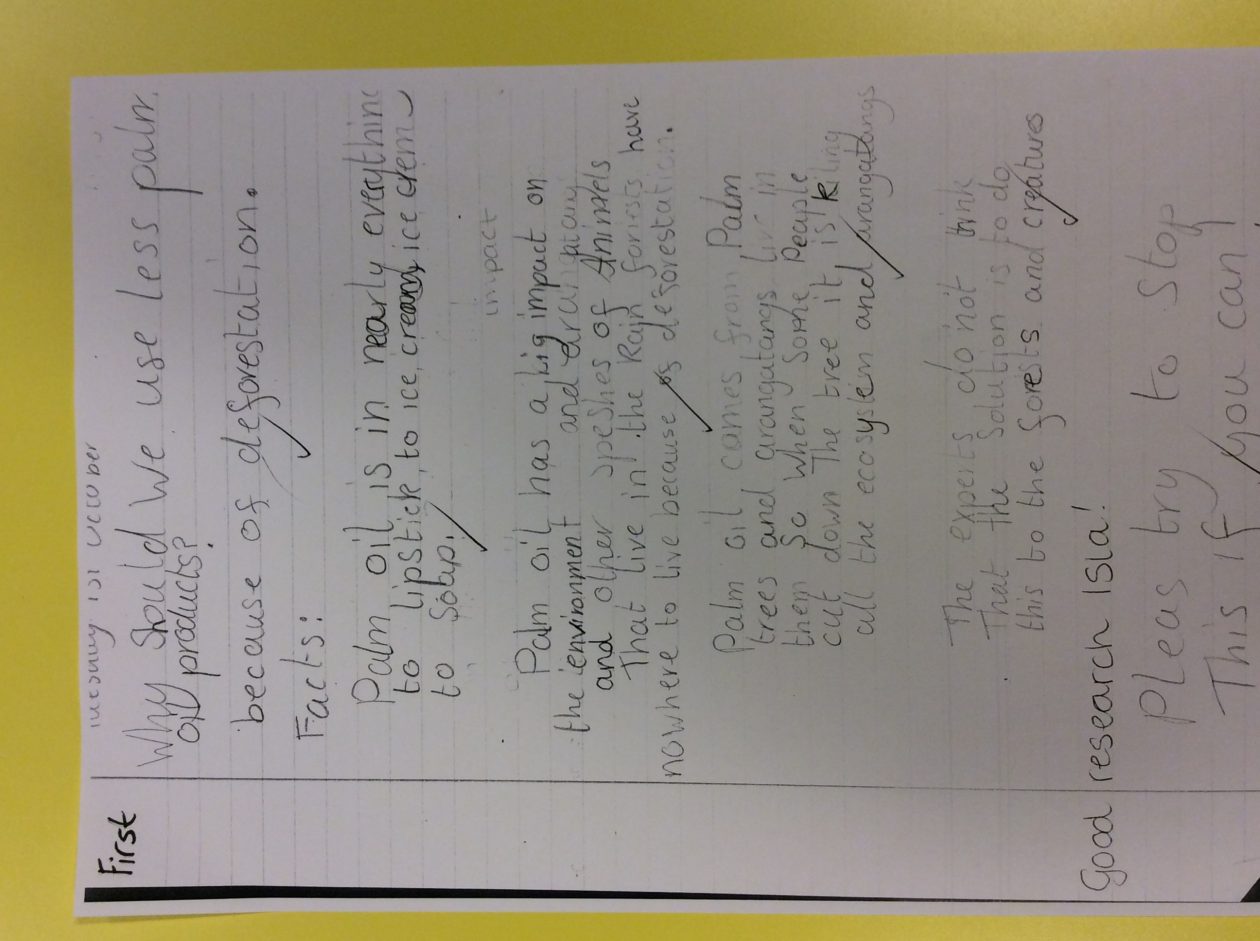 First
Tuesday 1st October
Why Should We use less palm
oil products?
because of deforestation.
Facts:
Palm oil is in nearly everything
to lipstick, to ice cream, ice crem
to Soap.
impact
Palm oil has a big impact on
the environment and orangatang
and other speshes of Animels
That live in the Rain forests have
nowhere to live because of deforestation.
Palm oil comes from Palm
trees and arangatangs liv in
them So when Some Peaple
cut down The tree it is killing
all the ecosystem and arangatangs
The experts do not think
That the Solution is to do
this to the forests and creatures
Good research Isla!
Pleas try to Stop
This if you can!